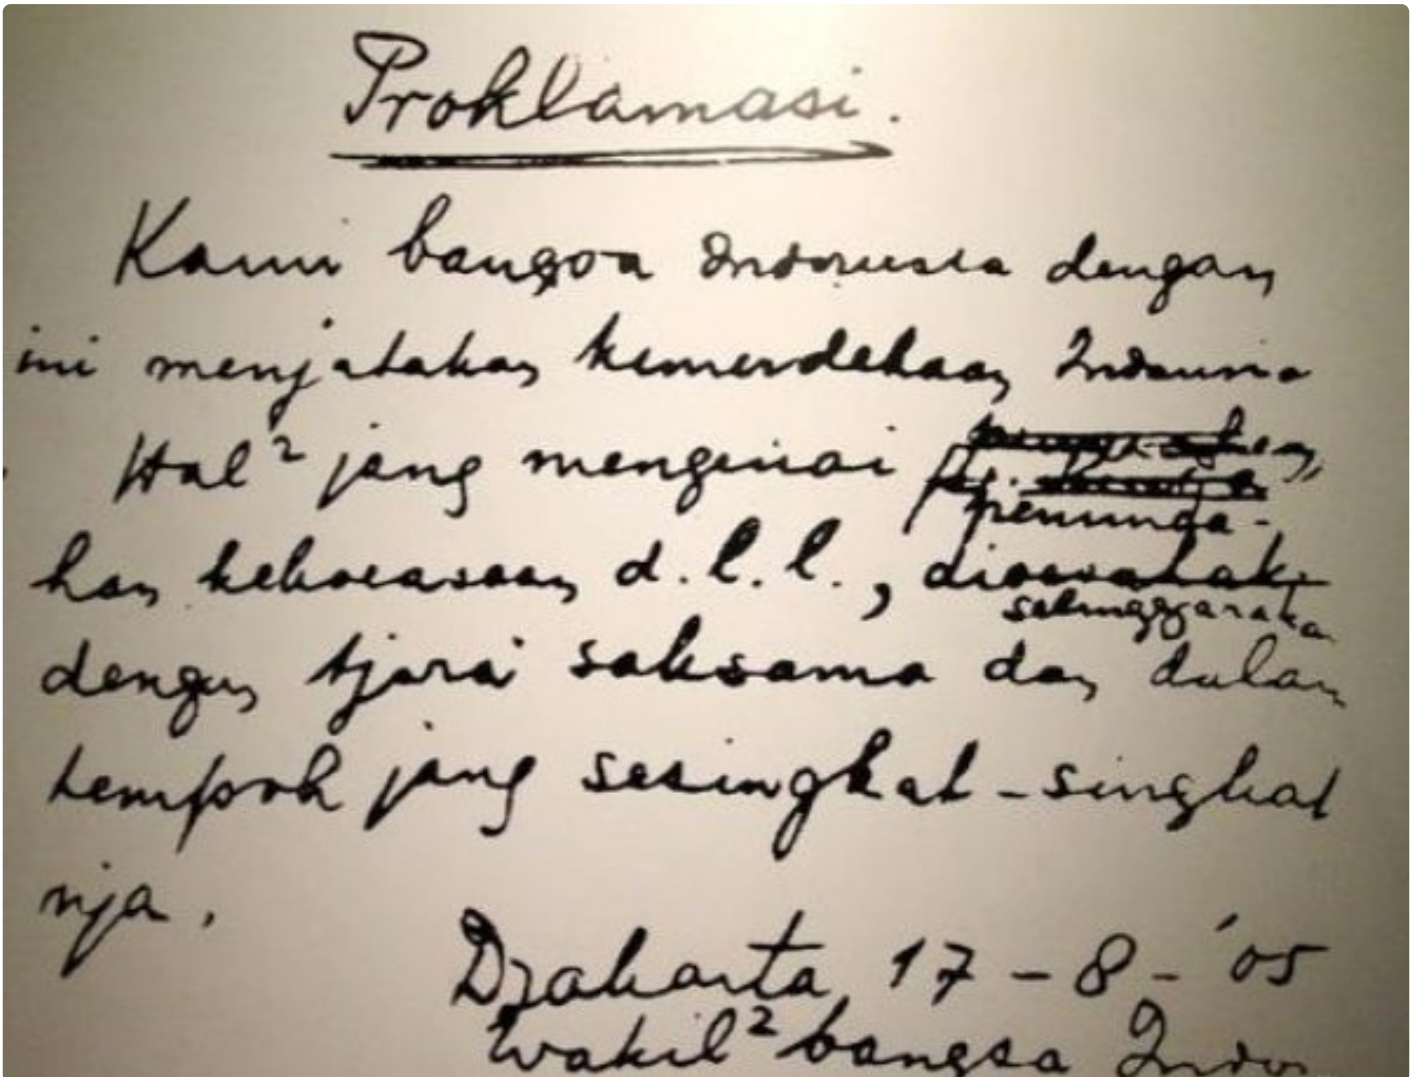 Proklamasi.
Kami bangsa Indonesia dengan
ini menjatakan kemerdekaan Indonesia
Hal² jang mengenai
peminda-
han kekoeasaan d.l.l., dioesahakan
selenggarakan
dengan tjara saksama dan dalam
tempoh jang sesingkat-singkat
nja.
Djakarta, 17 - 8 - '05
Wakil² bangsa Indon